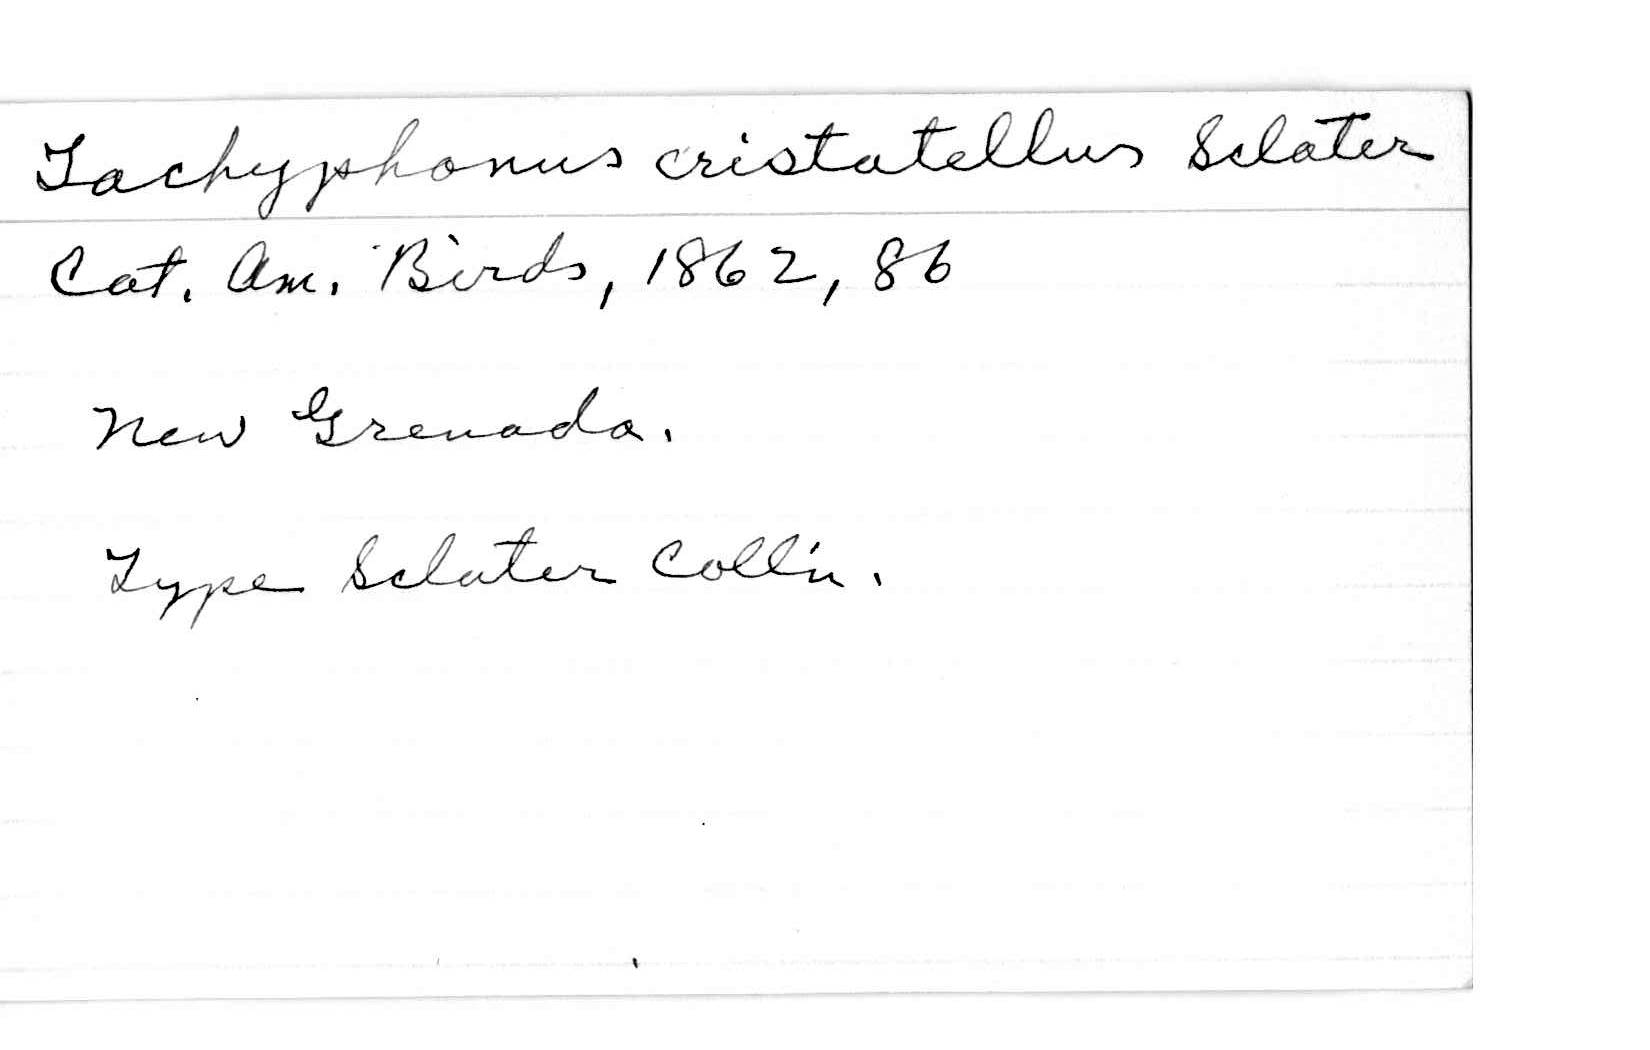 Tachyphonus cristatellus Sclater
Cat. Am. Birds, 1862, 86
New Grenada.
Type Sclater Coll'n.